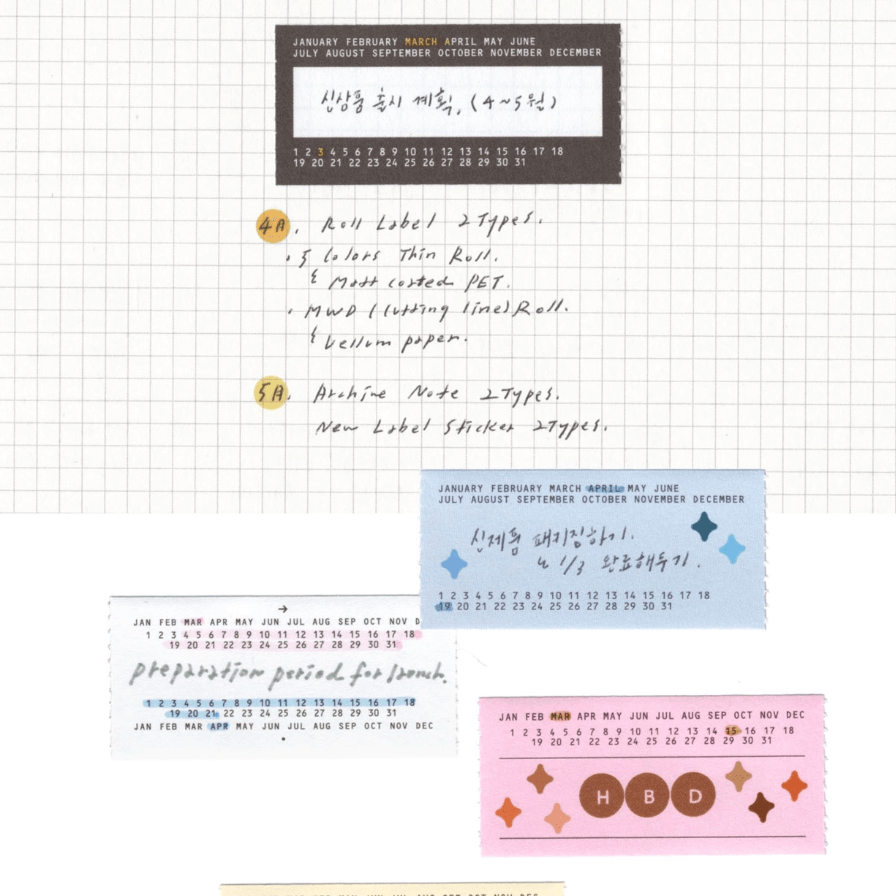 JANUARY FEBRUARY MARCH APRIL MAY JUNE
JULY AUGUST SEPTEMBER OCTOBER NOVEMBER DECEMBER
신상품 출시 계획. (4~5월)
1 2 3 4 5 6 7 8 9 10 11 12 13 14 15 16 17 18
19 20 21 22 23 24 25 26 27 28 29 30 31
4月. Roll Label 2Types.
• 5 Colors Thin Roll.
Matt coated PET.
• MWD (Cutting line) Roll.
Vellum paper.
5月. Archive Note 2Types.
New Label Sticker 2Types.
JANUARY FEBRUARY MARCH APRIL MAY JUNE
JULY AUGUST SEPTEMBER OCTOBER NOVEMBER DECEMBER
신제품 패키징하기.
1/3 완료해두기.
1 2 3 4 5 6 7 8 9 10 11 12 13 14 15 16 17 18
19 20 21 22 23 24 25 26 27 28 29 30 31
→
JAN FEB MAR APR MAY JUN JUL AUG SEP OCT NOV
1 2 3 4 5 6 7 8 9 10 11 12 13 14 15 16 17 18
19 20 21 22 23 24 25 26 27 28 29 30 31
preparation period for launch.
1 2 3 4 5 6 7 8 9 10 11 12 13 14 15 16 17 18
19 20 21 22 23 24 25 26 27 28 29 30 31
JAN FEB MAR APR MAY JUN JUL AUG SEP OCT NOV DEC
JAN FEB MAR APR MAY JUN JUL AUG SEP OCT NOV DEC
1 2 3 4 5 6 7 8 9 10 11 12 13 14 15 16 17 18
19 20 21 22 23 24 25 26 27 28 29 30 31
H B D